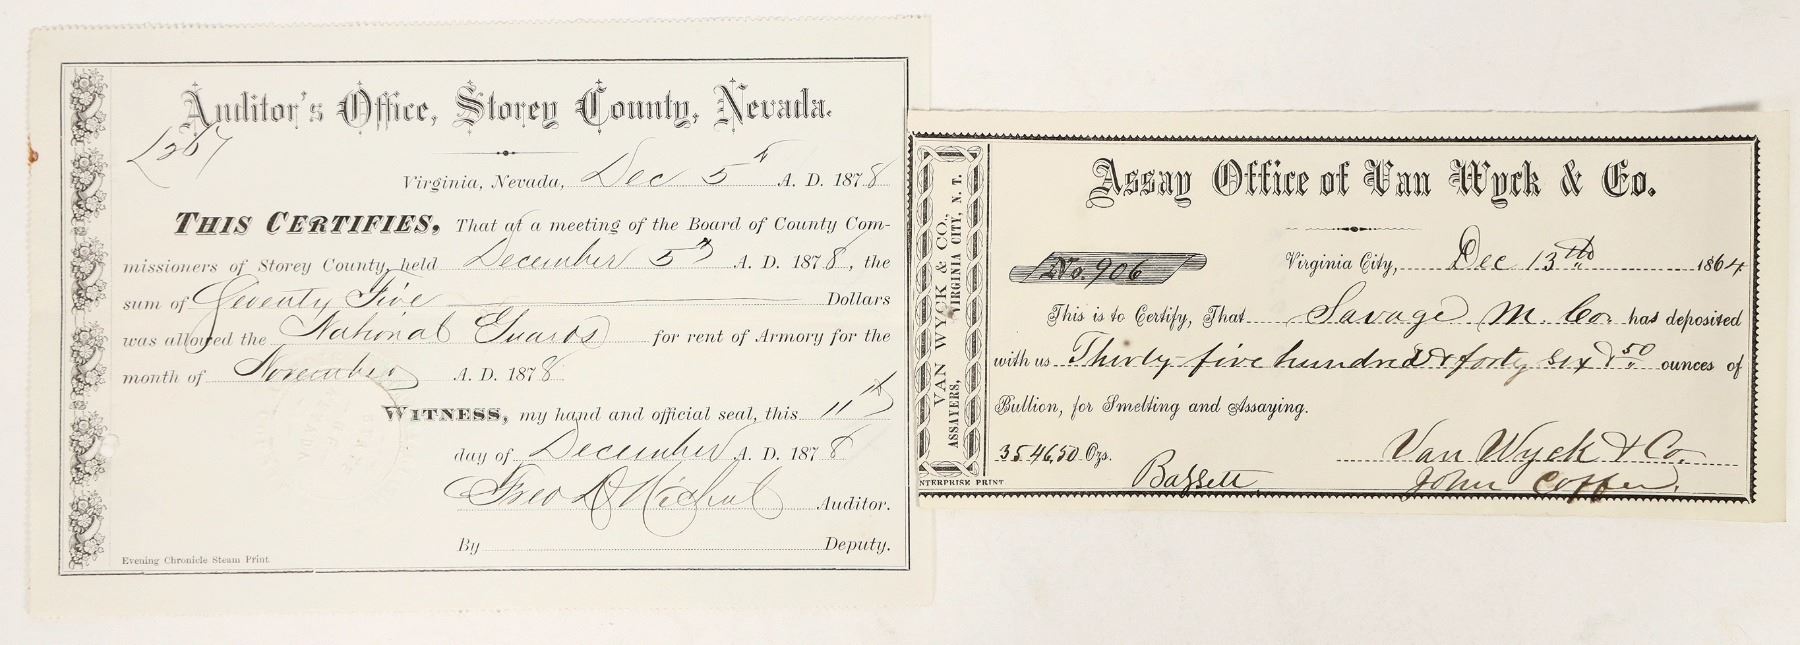 Auditor's Office, Storey County, Nevada.
Virginia, Nevada, Dec 5th A. D. 1878
THIS CERTIFIES, That at a meeting of the Board of County Com-
missioners of Storey County, held December 5th A. D. 1878, the
sum of Seventy Five Dollars
was allowed the National Guards for rent of Armory for the
month of November A. D. 1878
WITNESS, my hand and official seal, this 11th
day of December A. D. 1878
Auditor.
By Deputy.
Evening Chronicle Steam Print.
VAN WYCK & CO.,
ASSAYERS, VIRGINIA CITY, N. T.
ENTERPRISE PRINT
Assay Office of Van Wyck & Co.
No. 906 Virginia City, Dec 13th 1864
This is to Certify, That Savage M. Co. has deposited
with us Thirty five hundred & forty six & 50 ounces of
Bullion, for Smelting and Assaying.
3546.50 Ozs. Van Wyck & Co.
Bassett John